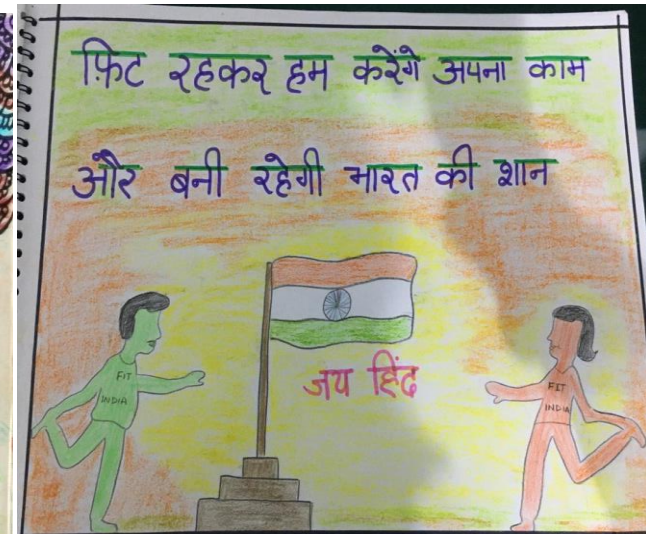 फ़िट रहकर हम करेंगे अपना काम
और बनी रहेगी भारत की शान
जय हिंद
FIT
INDIA
FIT
INDIA